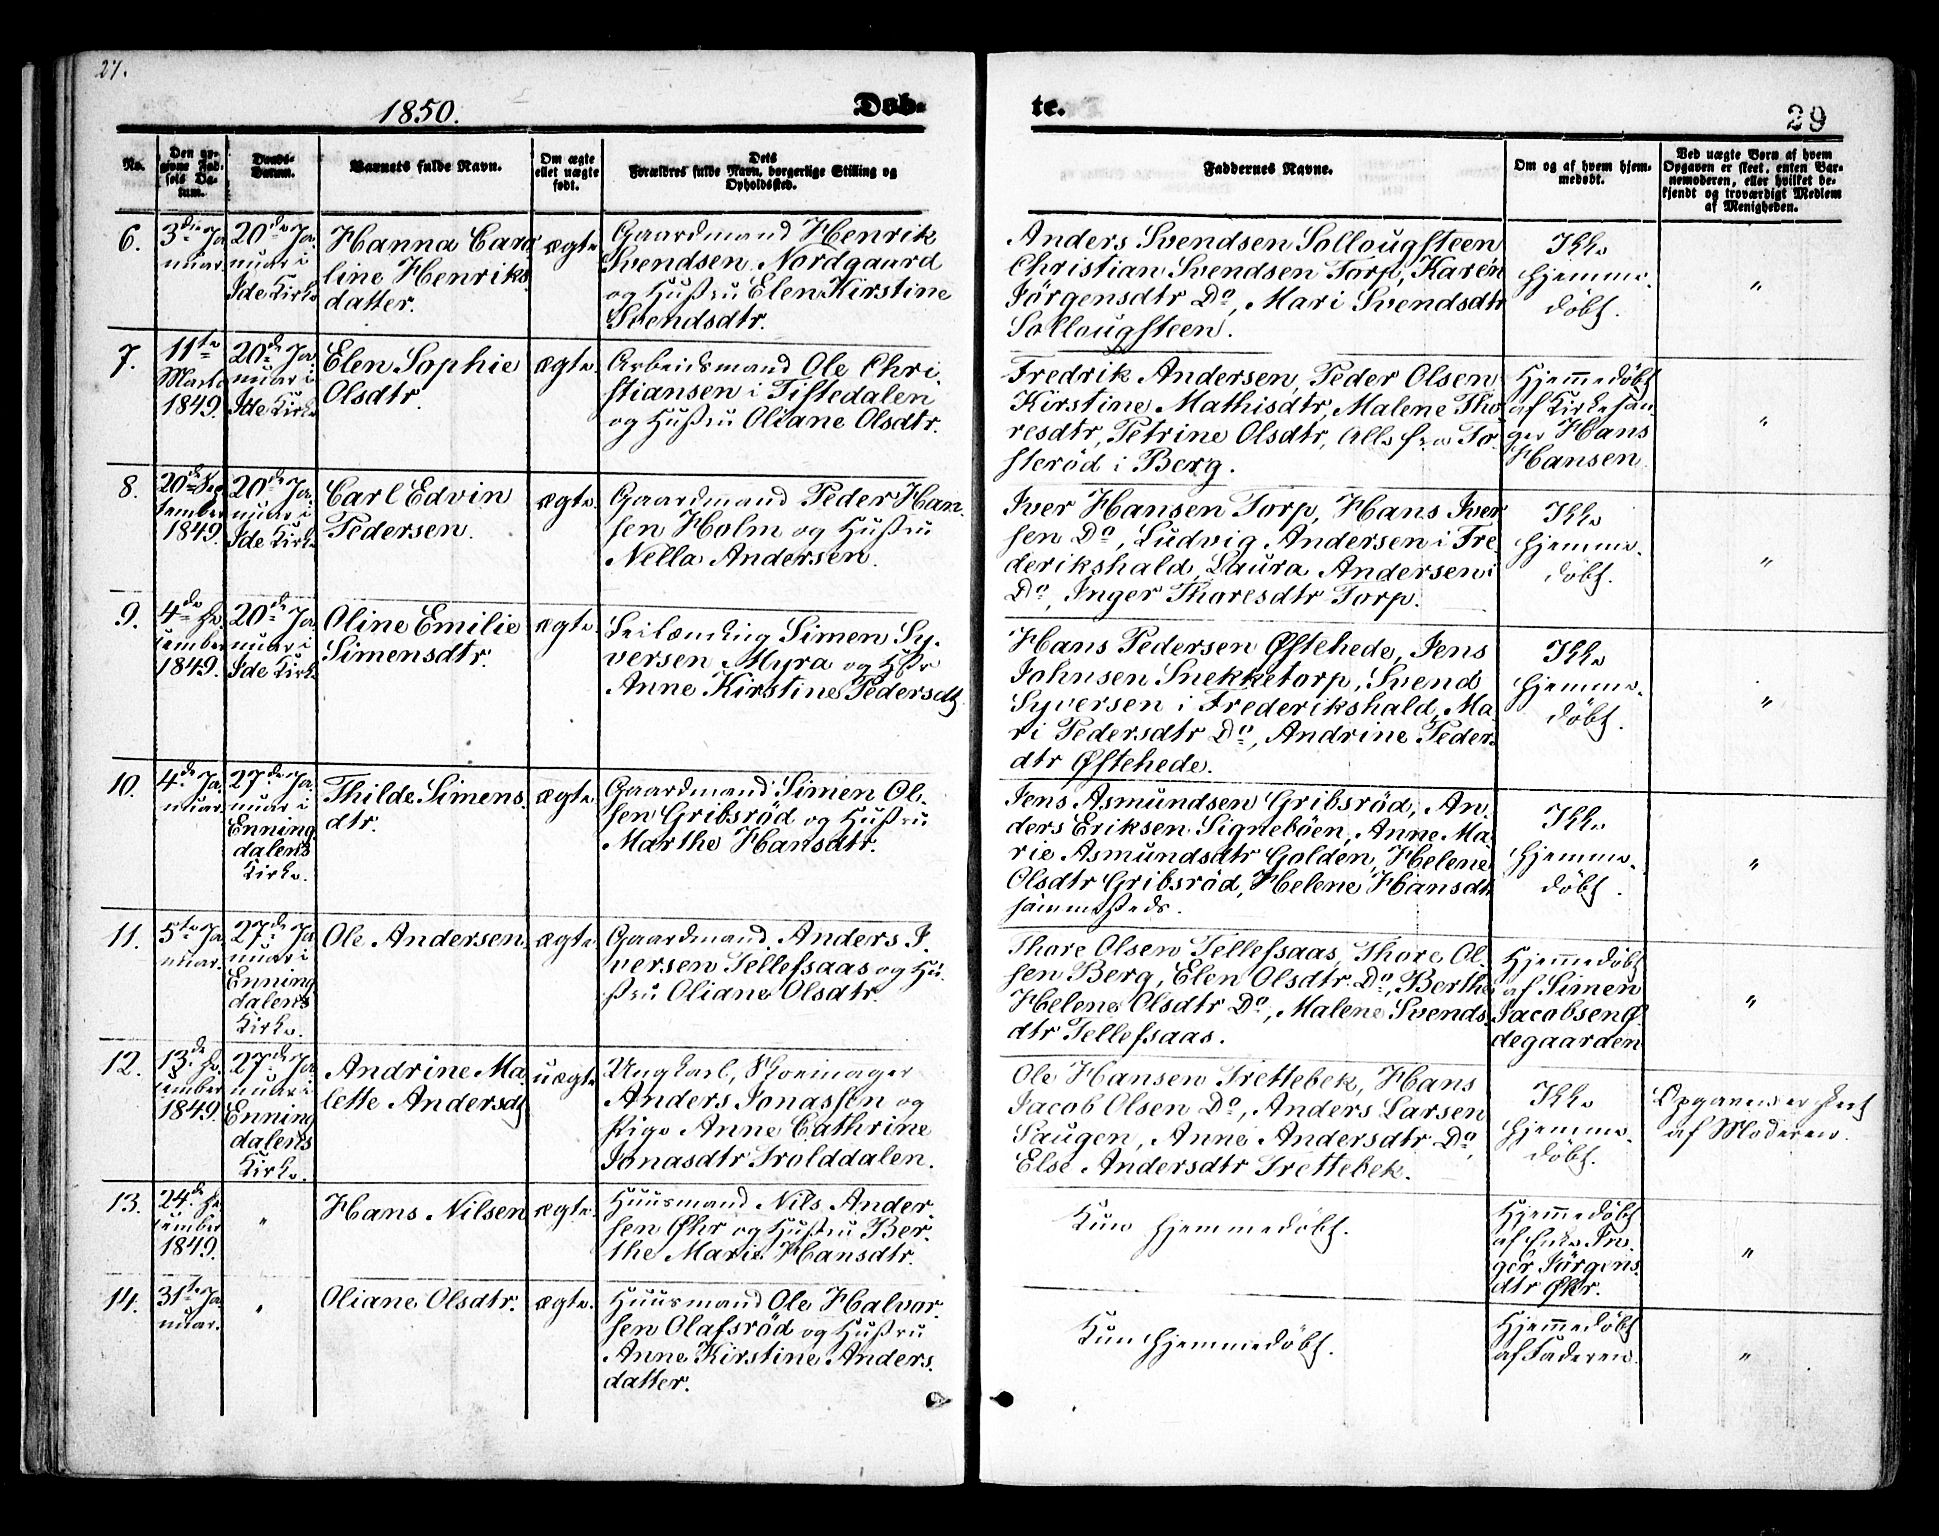 27.
1850.
Døb-
te.
29
No.
Den op-
givne Fød-
sels Da-
tum.
Daabs-
Datum.
Barnets fulde Navn.
Om ægte
ellet uægte
født.
Dets
Forældres fulde Navn, borgerlige Stilling og
Opholdssted.
Faddernes Navne.
Om og af hvem hjem-
medøbt.
Ved uægte Børn af hvem
Opgaven er skeet, enten Bar-
nemoderen, eller hvilket be-
kjendt og troværdigt Medlem
af Menigheden.
6.
3die Ja
nuar.
20de Ja.
nuar i
Ide Kirke
Hanna Caro
line Henriks
datter.
ægte
Gaardmand Henrik
Svendsen Nordgaard
og Hustru Elen Kirstine
Svendsdtr.
Anders Svendsen Sollougsteen
Christian Svendsen Torp, Karen
Jörgensdtr Do, Mari Svendsdtr
Sollougsteen.
Ikke
hjemme-
døbt.
"
7.
11te
Marts
1849.
20de Ja
nuar i
Ide Kirke
Elen Sophie
Olsdtr.
ægte.
Arbeidsmand Ole Chri.
stiansen i Tistedalen
og Hustru Oliane Olsdtr.
Fredrik Andersen, Peder Olsen
Kirstine Mathisdtr, Malene Tho
resdtr, Petrine Olsdtr, Alle fra To
steröd i Berg.
Hjemmedøbt
af Kirkesan-
ger Hans
Hansen
"
8.
20de Sep
tember
1849.
20de Ja.
nuar i
Ide Kirke
Carl Edvin
Pedersen.
ægte.
Gaardmand Peder Han.
sen Holm og Hustru
Nella Andersen.
Iver Hansen Torp, Hans Iver
sen Do, Ludvig Andersen i Fre
derikshald, Laura Andersen i
Do, Inger Thoresdtr Torp.
Ikke
hjemme-
døbt.
"
9.
4de De.
cember
1849.
20de Ja
nuar i
Ide Kirke
Oline Emilie
Simensdtr.
ægte.
Leilænding Simen Sy-
versen Myra og Hstr
Anne Kirstine Pedersdt
Hans Pedersen Østehede, Jens
Johnsen Snekketorp, Svend
Syversen i Frederikshald, Ma
ri Pedersdtr Do, Andrine Peders
dtr Østehede.
Ikke
hjemme-
døbt.
"
10.
4de Ja
nuar.
27de Ja
nuar i
Enning
dalens
Kirke.
Thilde Simens
dtr.
ægte.
Gaardmand Simen Ol-
sen Gribsröd og Hustru
Marthe Hansdtr.
Jens Asmundsen Gribsröd, An.
ders Eriksen Signeböen, Anne Ma-
rie Asmundsdtr Golden, Helene
Olsdtr Gribsröd, Helene Hansdtr
sammesteds.
Ikke
hjemme-
døbt.
"
11.
5te Ja
nuar.
27de Ja
nuar i
Enning
dalens
Kirke.
Ole Andersen
ægte.
Gaardmand Anders I.
versen Tellefsaas og Hu
stru Oliane Olsdtr.
Thore Olsen Tellefsaas, Thore Ol.
sen Berg, Elen Olsdtr Do, Berthe
Helene Olsdtr Do, Malene Svends.
dtr Tellefsaas.
Hjemmedøbt
af Simen
Jacobsen Ø
degaarden
"
12.
13de De.
cember
1849.
27de Ja
nuar i
Enning
dalens
Kirke.
Andrine Ma
lette Andersdt
uægte
Ungkarl, Skoemager
Anders Jonassen og
Pige Anne Cathrine
Jonasdtr Trolddalen.
Ole Hansen Trettebek, Hans
Jacob Olsen Do, Anders Larsen
Saugen, Anne Andersdtr Do,
Else Andersdtr Trettebek.
Ikke
hjemme-
døbt.
Opgaven er skeet
af Moderen.
13.
24de De
cember
1849.
"
Hans Nilsen
ægte.
Huusmand Nils Ander.
sen Øhr og Hustru Ber.
the Marie Hansdtr.
Kun hjemmedøbt.
Hjemmedøbt
af Enke In-
ger Jörgens
dtr Øhr.
"
14.
31te Ja
nuar.
"
Oliane Olsdtr.
ægte.
Huusmand Ole Halvor.
sen Olafsröd og Hustru
Anne Kirstine Anders.
datter.
Kun hjemmedøbt.
Hjemmedøbt
af Faderen.
"